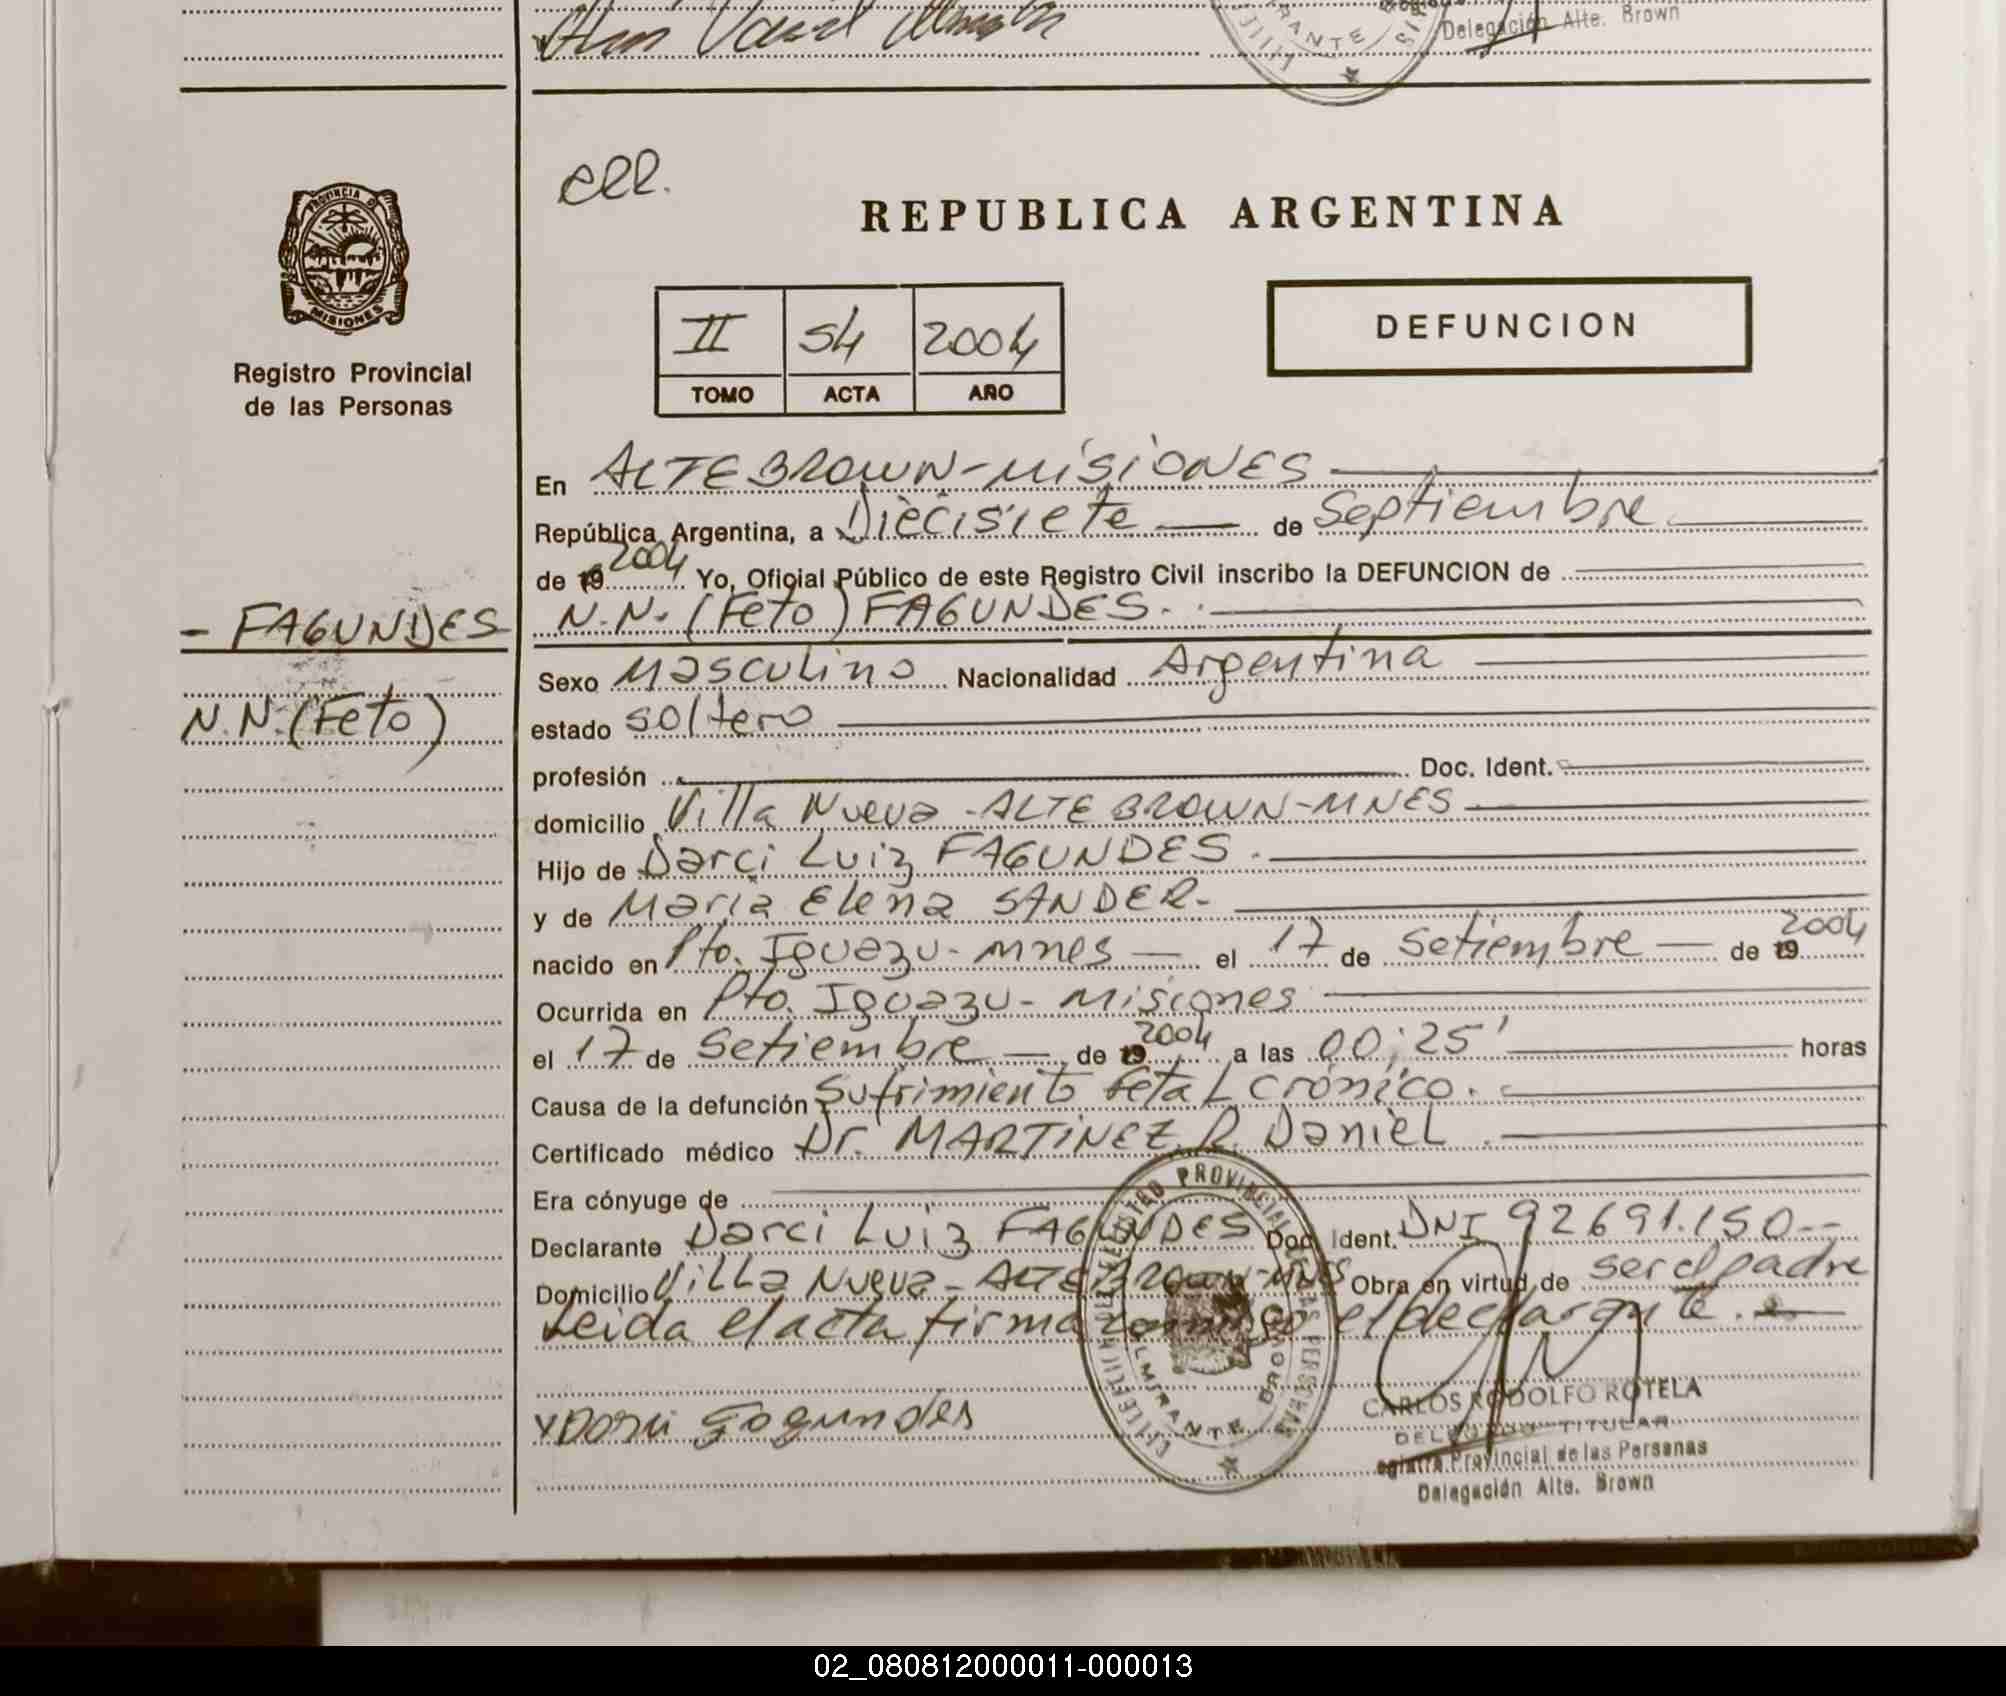 Delegación Alte. Brown
ell.
REPUBLICA ARGENTINA
PROVINCIA D
MISIONES
Registro Provincial
de las Personas
II 54 2004
TOMO ACTA AÑO
DEFUNCION
En ALTE BROWN-MISIONES
República Argentina, a Diecisiete de Septiembre
de 19 2004 Yo, Oficial Público de este Registro Civil inscribo la DEFUNCION de
- FAGUNDES
N.N. (Feto) FAGUNDES.
Sexo Masculino Nacionalidad Argentina
N.N. (Feto)
estado soltero
profesión Doc. Ident.
domicilio Villa Nueva - ALTE BROWN-MNES
Hijo de Darci Luiz FAGUNDES.
y de Maria Elena SANDER-
nacido en Pto. Iguazu - Mnes el 17 de Setiembre de 19 2004
Ocurrida en Pto. Iguazu - Misiones
el 17 de Setiembre de 19 2004 a las 00:25' horas
Causa de la defunción Sufrimiento Fetal crónico.
Certificado médico Dr. MARTINEZ R. Daniel
Era cónyuge de
Declarante Darci Luiz FAGUNDES Doc Ident. DNI 92691.150--
Domicilio Villa Nueva - ALTE BROWN-MNES Obra en virtud de ser el padre
Leida el acta firma conmigo el declarante.
CARLOS RODOLFO ROTELA
DELEGADO TITULAR
egistro Provincial de las Personas
Delegación Alte. Brown
ALMIRANTE BROWN
02_080812000011-000013